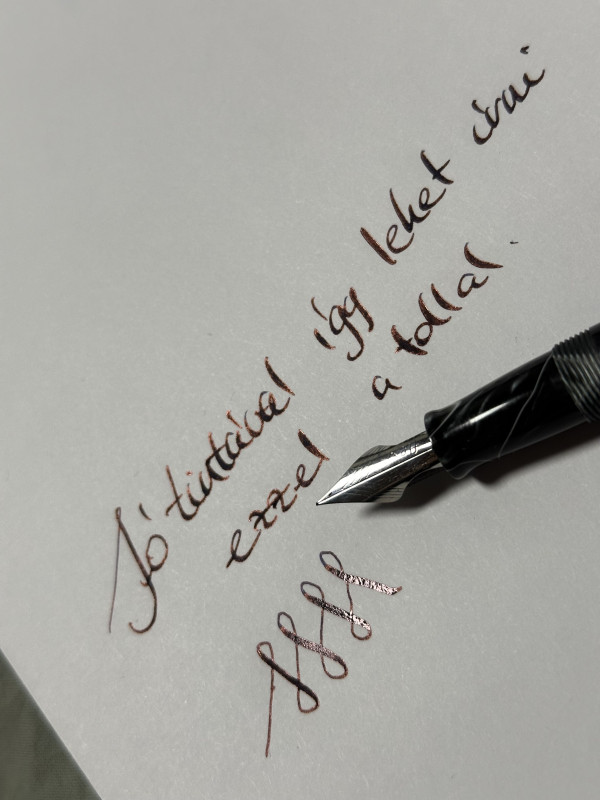 Jó tintával így lehet írni
ezzel a tollal.